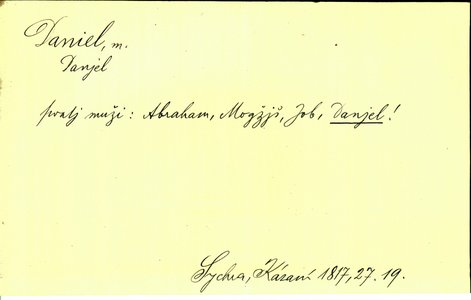 Daniel, m.
Danjel
svatj muži: Abraham, Mogžjš, Job, Danjel!
Sychra, Kázaní 1817, 27. 19.